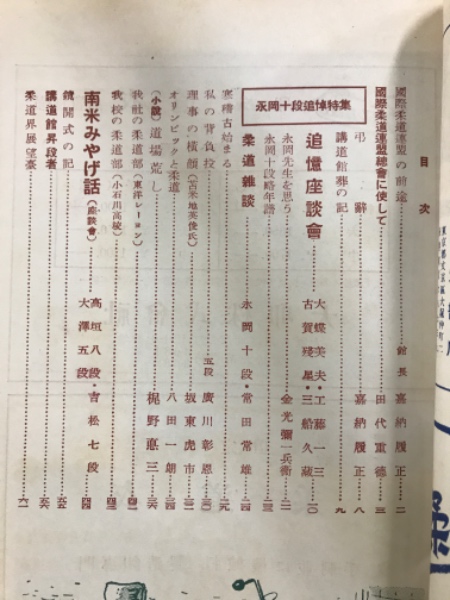 目次
國際柔道連盟の前途 館長 嘉納履正 二
國際柔道連盟總會に使して 田代重德 三
弔辭 嘉納履正 八
講道館葬の記 九
永岡十段追悼特集
追憶座談會 大蝶美夫・工藤一三 古賀殘星・三船久藏 一〇
永岡先生を思う 金光彌一兵衞
永岡十段略年譜
柔道雜談 永岡十段・常田常雄 二四
寒稽古始まる
私の背負投 五段 廣川彰恩
理事の橫顏(古米地英俊氏) 坂東虎市
オリンピックと柔道 八田一朗
(小說)道場荒し 梶野悳三
我社の柔道部(東洋レーヨン)
我校の柔道部(小石川高校)
南米みやげ話(座談會) 高垣八段・吉松七段 大澤五段 四四
鏡開式の記
講道館昇段者
柔道界展望臺 六一
柔